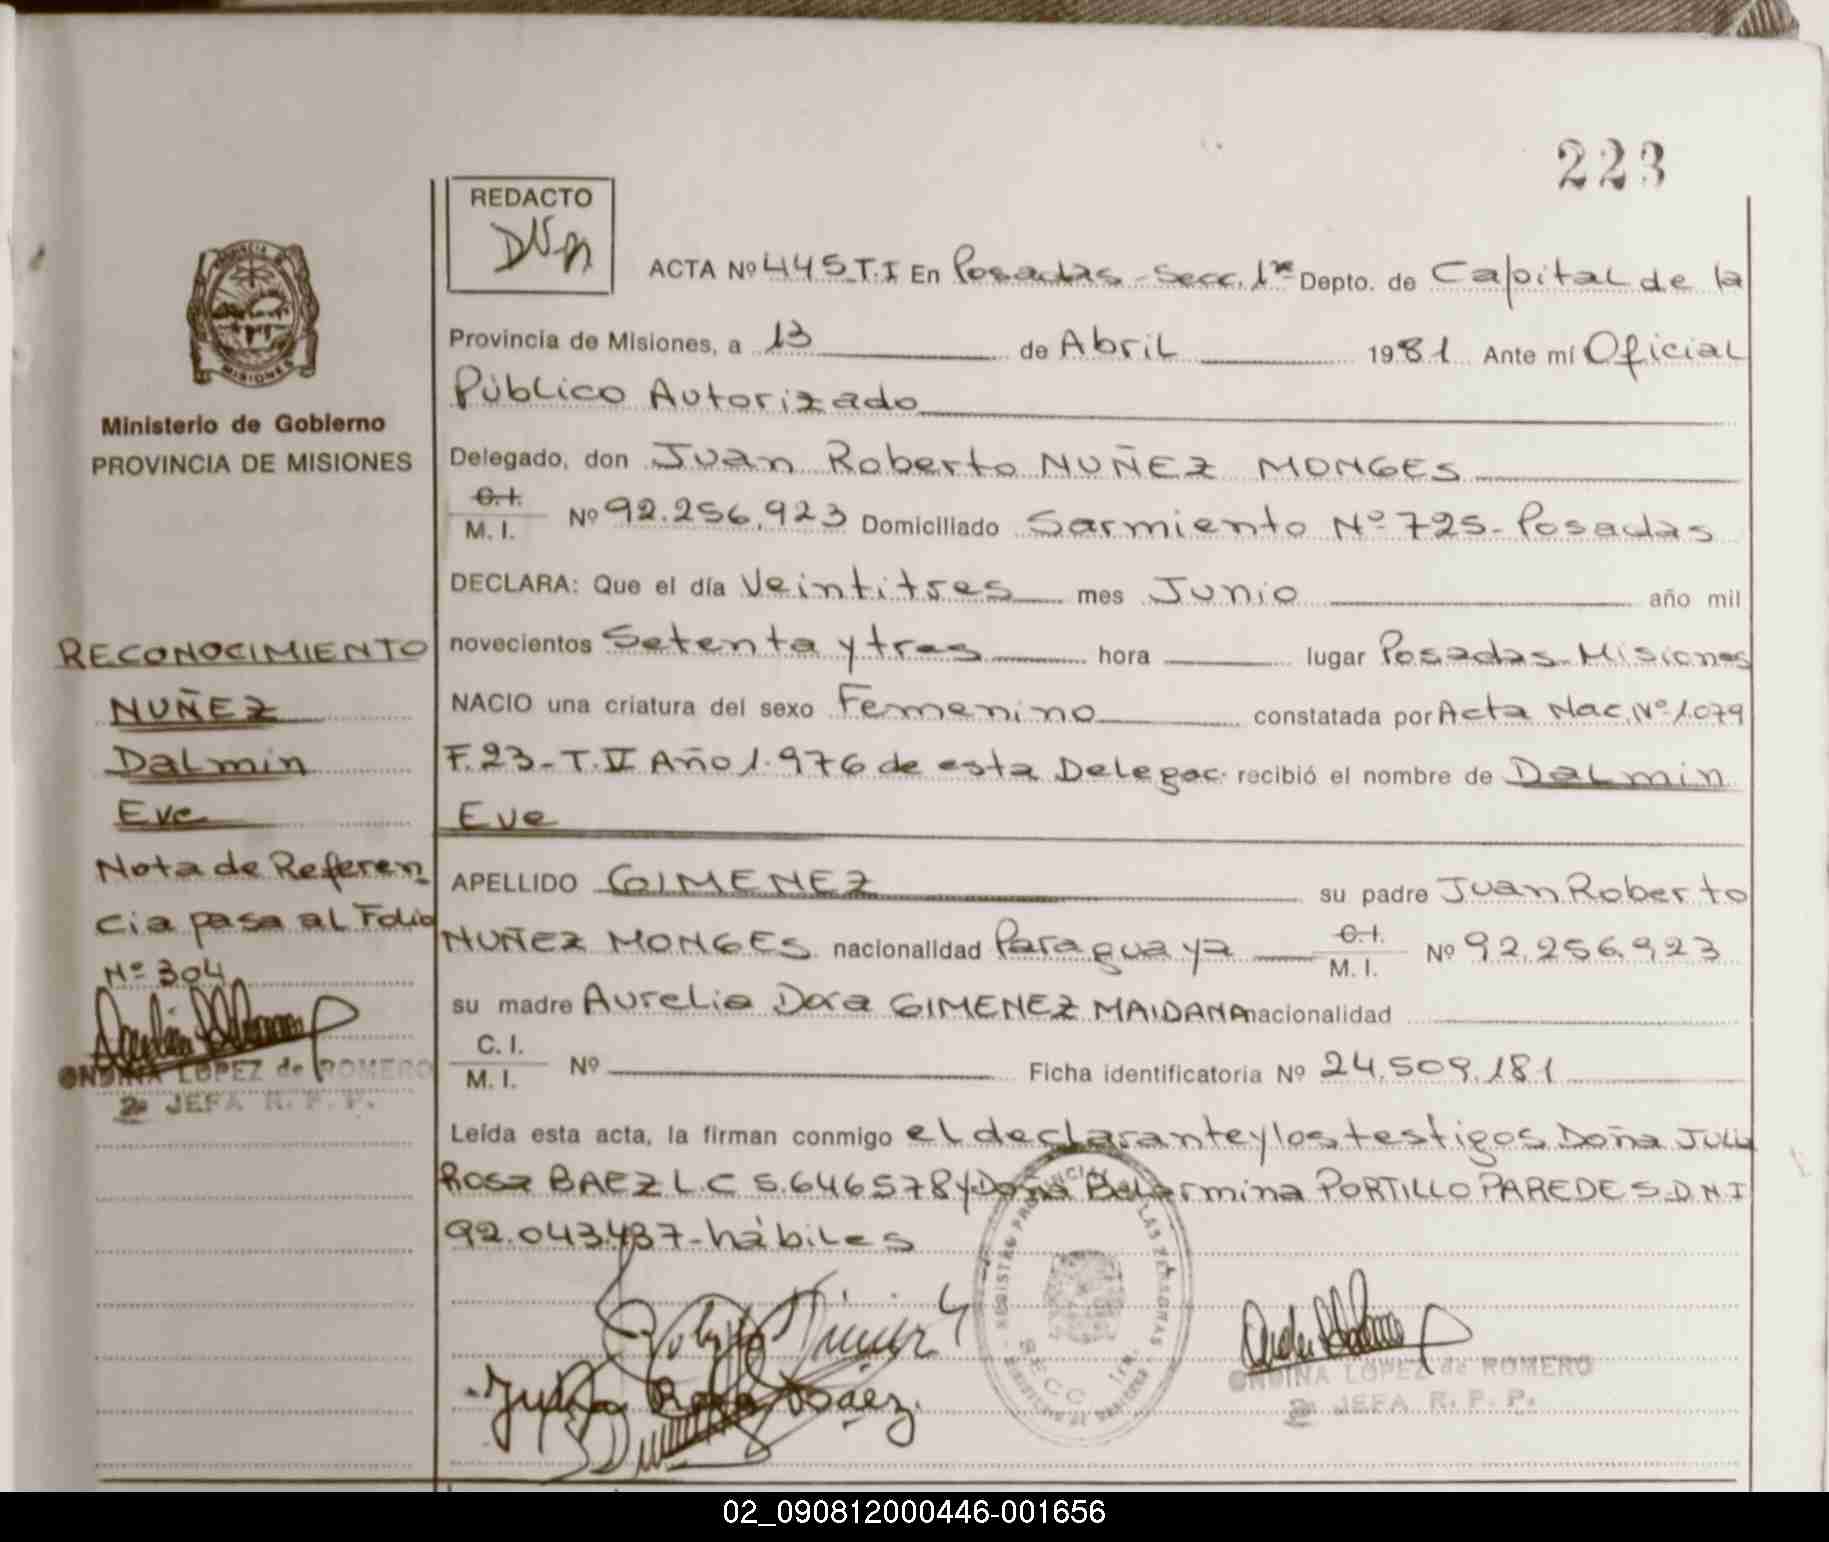 223
REDACTO
ACTA Nº 445 T.I En Posadas - Secc. 1ra Depto. de Capital de la
Provincia de Misiones, a 13 de Abril 1981 Ante mí Oficial
Público Autorizado
Delegado, don Juan Roberto NUÑEZ MONGES
C.I.
M. I. Nº 92.256.923 Domiciliado Sarmiento Nº 725 - Posadas
DECLARA: Que el día Veintitres mes Junio año mil
novecientos Setenta y tres hora lugar Posadas - Misiones
NACIO una criatura del sexo Femenino constatada por Acta Nac. Nº 1.079
F. 23 - T. VI Año 1.976 de esta Delegac. recibió el nombre de Dalmin
Eve
APELLIDO GIMENEZ su padre Juan Roberto
NUÑEZ MONGES nacionalidad Paraguaya C.I.
M. I. Nº 92.256.923
su madre Aurelia Dora GIMENEZ MAIDANA nacionalidad
C. I.
M. I. Nº Ficha identificatoria Nº 24.509.181
Leída esta acta, la firman conmigo el declarante y los testigos Doña
Rosa BAEZ L.C 5.646578 y Doña Belarmina PORTILLO PAREDES - D.N.I
92.043.437 - hábiles
Julia Rosa Báez.
REGISTRO PROVINCIAL DE LAS PERSONAS
SECC. 1ra.
ONDINA LOPEZ de ROMERO
2ª JEFA R. P. P.
PROVINCIA DE
MISIONES
Ministerio de Gobierno
PROVINCIA DE MISIONES
RECONOCIMIENTO
NUÑEZ
Dalmin
Eve
Nota de Referen
cia pasa al Folio
Nº 304
ONDINA LOPEZ de ROMERO
2ª JEFA R. P. P.
02_090812000446-001656